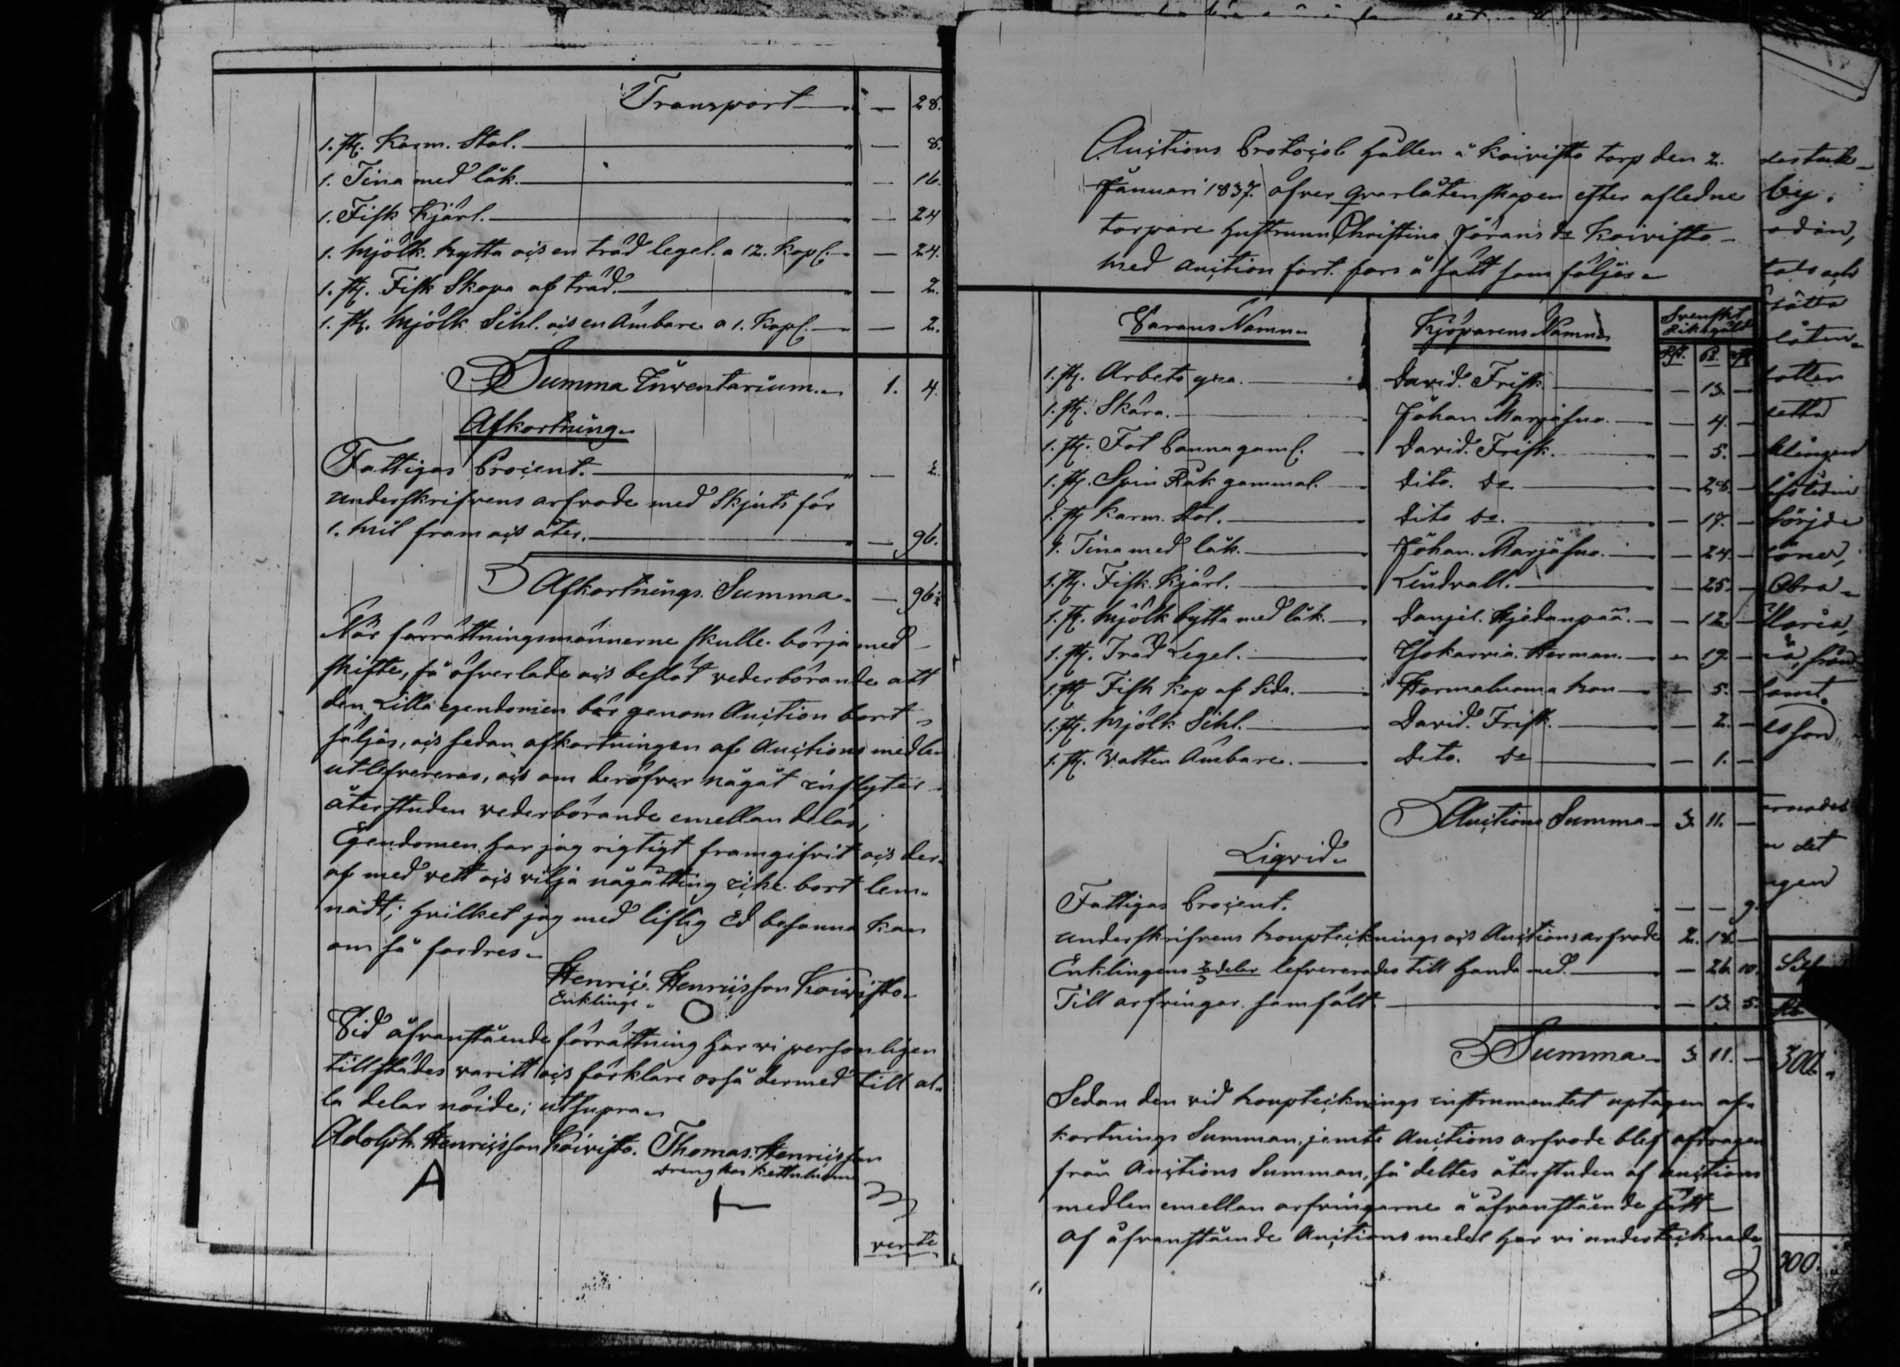 Transport — 28.
1. st. Karm. Stol. — 8.
1. Tina med låk. — 16.
1. Fisk Kjärl. — 24
1. Mjölk bytta och en träd legel. a 12. kop/: — 24.
1. st. Fisk Skopa af träd. — 2.
1. st. Mjölk Sihl. och en Ämbare a 1. Kop/: — 2.
Summa Inventarium. 1. 4.
Afkortning.
Fattigas Procent. — 2.
underskrifvens arfvode med Skjuts för
1. mil fram och åter. — 96.
Afkortnings Summa. — 96
När förrättningsmännerne skulle börja med
skifte, så öfverlade och beslöt vederbörande att
den Lilla egendomen bör genom Auction bort
säljas, och sedan afkortningen af Auctions medlen
utlefvereras, och om deröfver något inflyter
återstoden vederbörande emellan delas,
Egendomen har jag rigtigt framgifvit och der-
af med vett och vilja någåtting icke bort lem-
nadt; hvilket jag med liflig Ed besanna kan
om så fordres.
Henric Henricsson Koivisto
Enklinge.
Vid åfvanstående förrättning har vi personligen
tillstädes varitt och förklare osså dermed till al-
la delar nöide; utsupra.
Adolph. Henricsson Koivisto. Thomas. Henricsson
dreng hos Kettuluoma
A
vende
Auctions Protocol hållen å Koivisto torp den 2.
Januari 1837. öfver qvarlåtenskapen efter afledne
torpare hustrunn Christina Jörans dr Koivisto
med auction fört. fors å sätt som följer
Varans Namn Kjöparens Namn Svenskt Riksgäld
1. st. Arbets yxa. David. Frisk — 13. —
1. st. Skära. Johan Marjasuo. — 4. —
1. st. Fot Panna gaml. David. Frisk. — 5. —
1. st. Spin Råk gammal Dito. Do — 28. —
1. st. Karm. Stol. Dito Do. — 17. —
1. Tina med låk. Johan. Marjasuo. — 24. —
1. st. Fisk. Kjärl. Lindvall. — 25. —
1. st. Mjölk bytta med låk. Danjel. Hjedanpää. — 12 —
1. st. Träd Legel. Herman. — 19. —
1. st. Fisk kop af — 5. —
1. st. Mjölk Sihl. David. Frisk. — 2. —
1. st. Vatten Ämbare. Dito. Do — 1. —
Auctions Summa 3. 11. —
Liqvid.
Fattigas Procent. — — 9.
underskrifvens koupteknings och Auctions arfvode 2. 18. —
Enklingens 2/3 delar lefvererades till handa med. — 26. 10.
Till arfvingar samfält — 13. 5.
Summa 3 11. —
Sedan den vid koupteknings instrumentet uptagen af-
kortnings Summan, jemte Auctions arfvode blef afdragen
från Auctions Summan, så deltes återstoden af auctions
medlen emellan arfvingarne å åfvanstående sätt
Af åfvanstående Auctions medel har vi undertecknade
by.
det
300.
300.